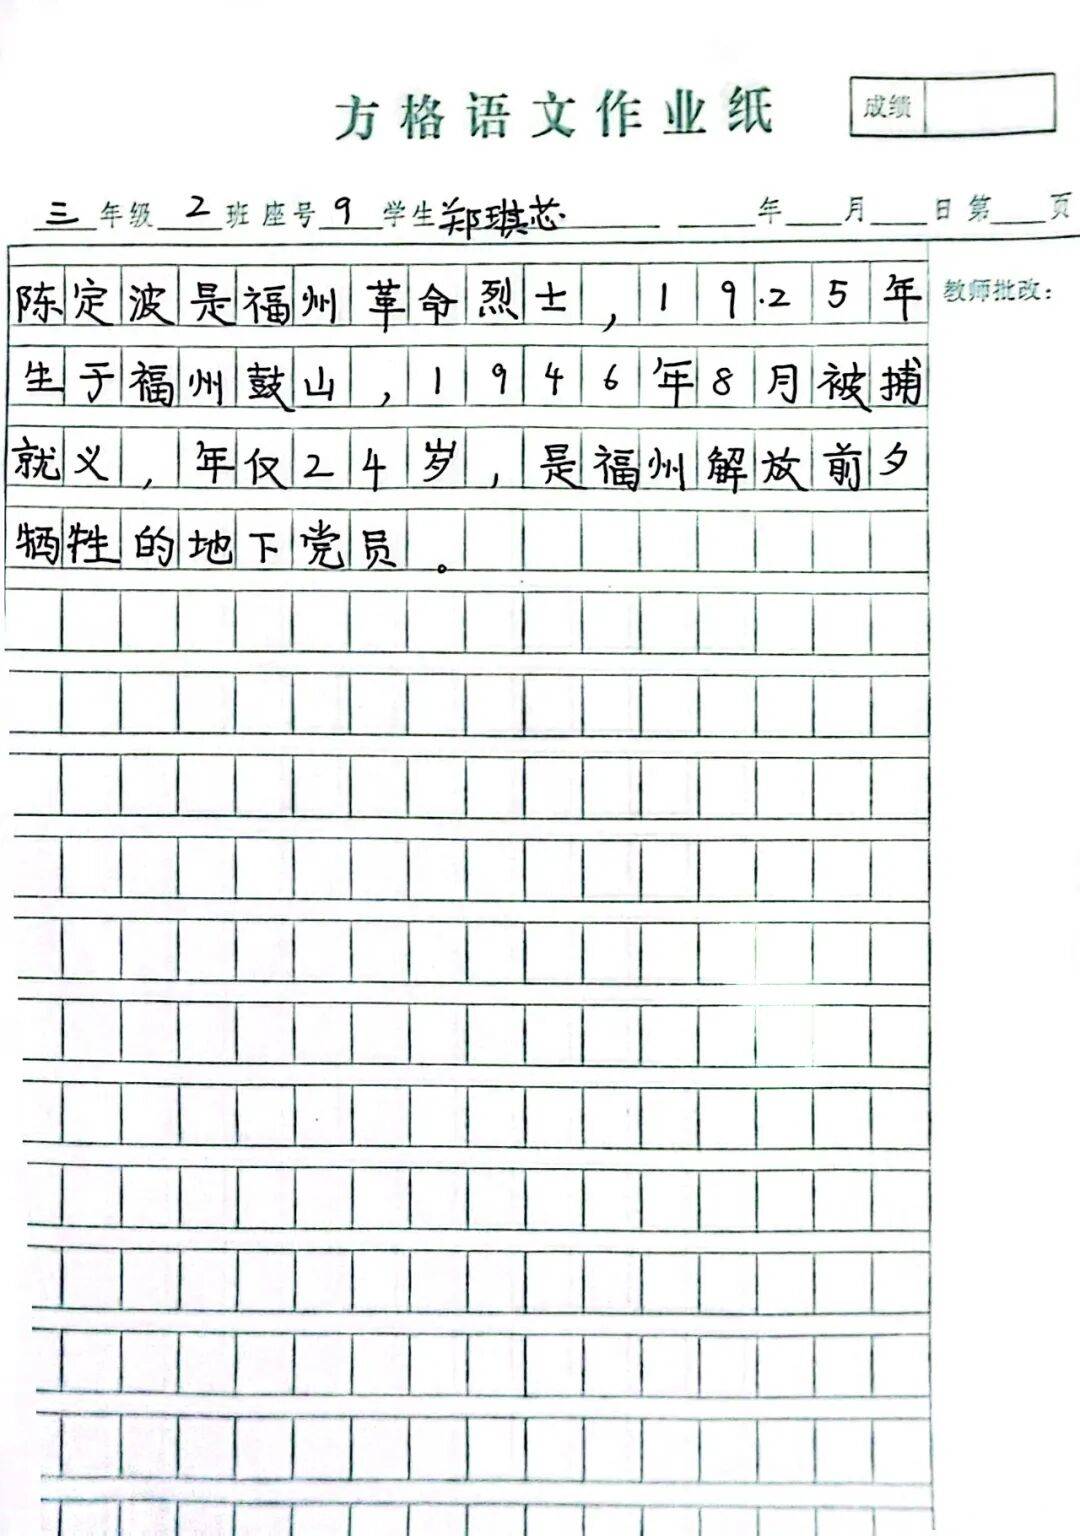 方格语文作业纸
成绩
三年级2班座号9学生郑琪芯 年 月 日第 页
教师批改：
陈定波是福州革命烈士，19.25年
生于福州鼓山，1946年8月被捕
就义，年仅24岁，是福州解放前夕
牺牲的地下党员。